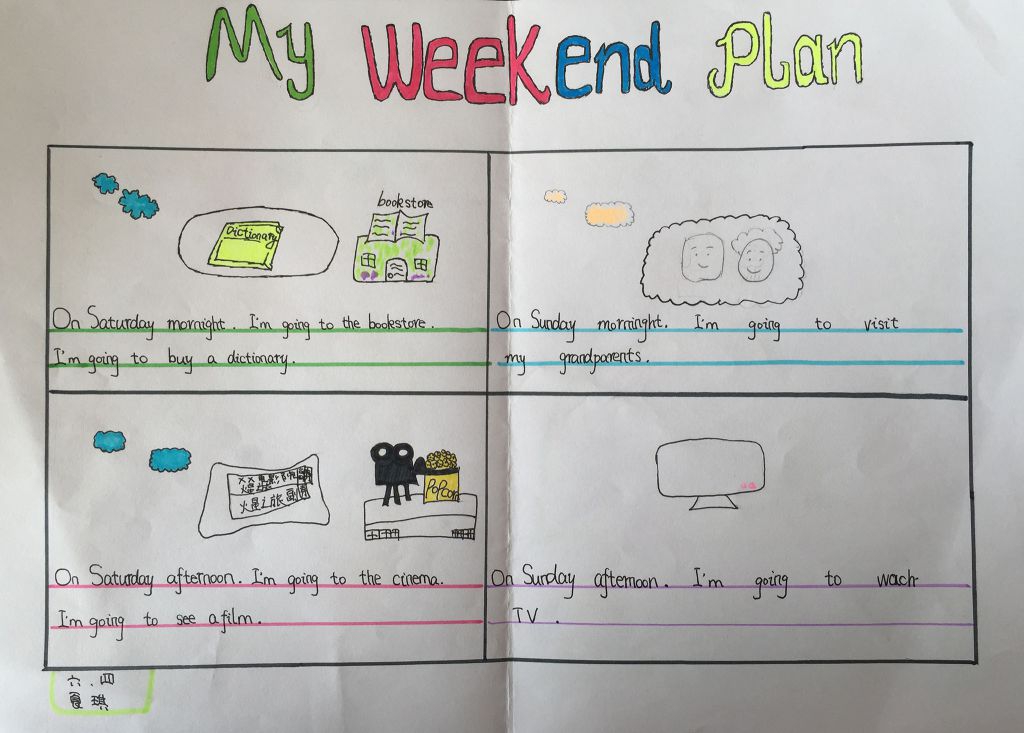 My Weekend Plan
Dictionary
bookstore
On Saturday mornight. I'm going to the bookstore.
I'm going to buy a dictionary.
On Sunday morninght. I'm going to visit
my grandparents.
火星之旅
PoPcorn
On Saturday afternoon. I'm going to the cinema.
I'm going to see a film.
On Sunday afternoon. I'm going to wach
TV.
六.四
夏琪